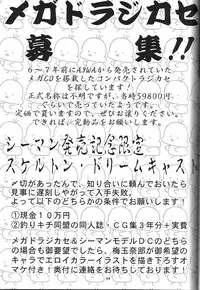 メガドラジカセ
募集!!
6～7年前にAIWAから発売されていた
メガCDを搭載したコンパクトラジカセ
を探しています!
正式名称は不明ですが、当時59800円
ぐらいで売っていたようです。
定価で買いますので、ぜひお譲りください。
ご連絡お待ちしております。
シーマン発売記念限定
スケルトン・ドリームキャスト
〆切があったんで、知り合いに頼んでおいたら
見事に遅刻しやがって入手失敗。
よって以下のどちらかの条件でお願いします!
①現金10万円
②釣りキチ同盟の同人誌・CG集3年分+実費
メガドラジカセ&シーマンモデルDCのどちら
の場合も御要望でしたら、梅玉奈部が御希望の
キャラでエロイカラーイラストを描いて下さす
オマケ付き!奥付に連絡をお待ちしております!